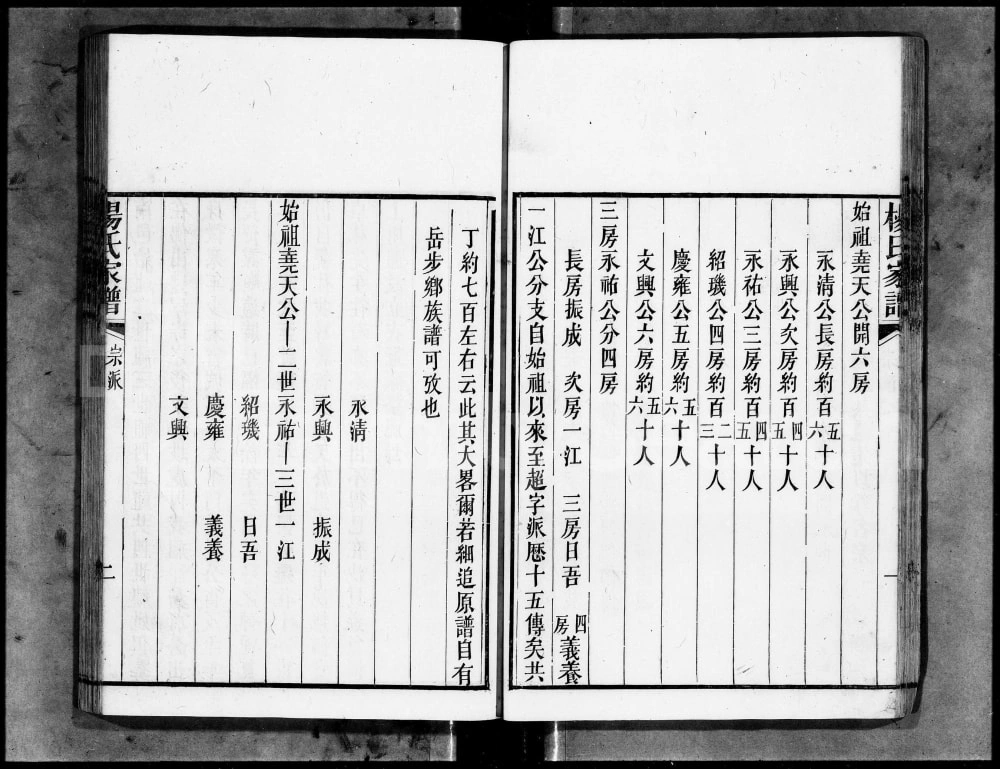 楊氏家譜
一
始祖堯天公開六房
永清公長房約百五六十人
永興公次房約百四五十人
永祐公三房約百四五十人
紹璣公四房約百二三十人
慶雍公五房約五六十人
文興公六房約五六十人
三房永祐公分四房
長房振成 次房一江 三房日吾 四房義養
一江公分支自始祖以來至超字派歷十五傳矣共
丁約七百左右云此其大畧爾若細追原譜自有
岳步鄉族譜可攷也
永清
永興 振成
始祖堯天公–二世永祐–三世一江
紹璣 日吾
慶雍 義養
文興
楊氏家譜 宗派 二